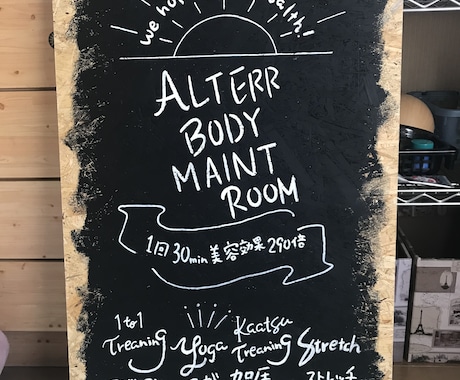 we ho
ealth!
ALTERR
BODY
MAINT
ROOM
1回30min美容効果290倍
1 to 1 Kaatsu
Treaning Yoga Treaning Stretch
加圧 ストレッチ